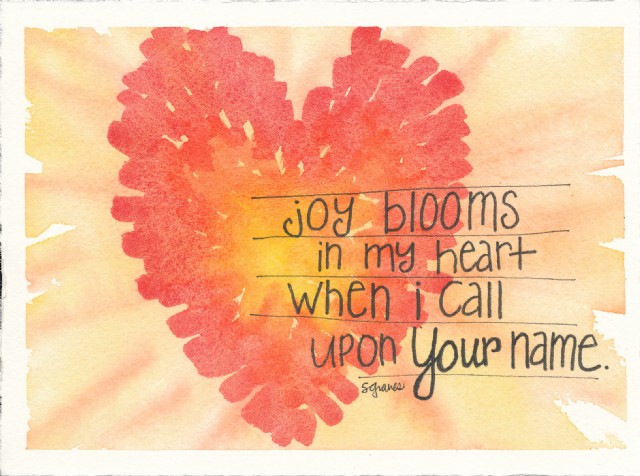 joy blooms
in my heart
when i call
upon your name.